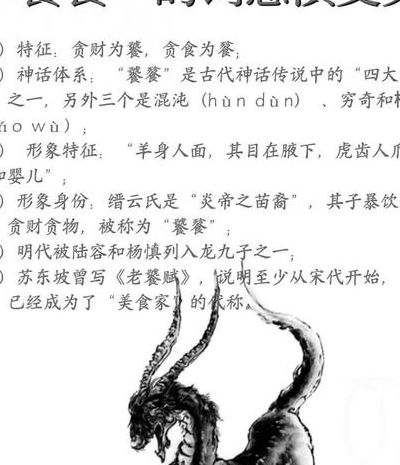 的词
）特征：贪财为饕，贪食为餮；
）神话体系：“饕餮”是古代神话传说中的“四大
之一，另外三个是混沌（hùn dùn）、穷奇和
áo wù）；
） 形象特征： “羊身人面，其目在腋下，虎齿人爪
婴儿”；
）形象身份：缙云氏是“炎帝之苗裔”，其子暴饮
贪财贪物，被称为“饕餮”；
）明代被陆容和杨慎列入龙九子之一；
）苏东坡曾写《老饕赋》，说明至少从宋代开始，
已经成为了“美食家”的代称。